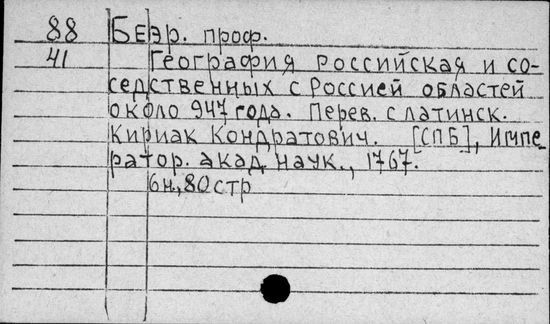 88 Беэр. проф.
41 География российская и со-
седственных с Россией областей
около 947 года. Перев. с латинск.
Кириак Кондратович. [СПБ], Импе
ратор. акад. наук., 1767.
6н., 80 стр